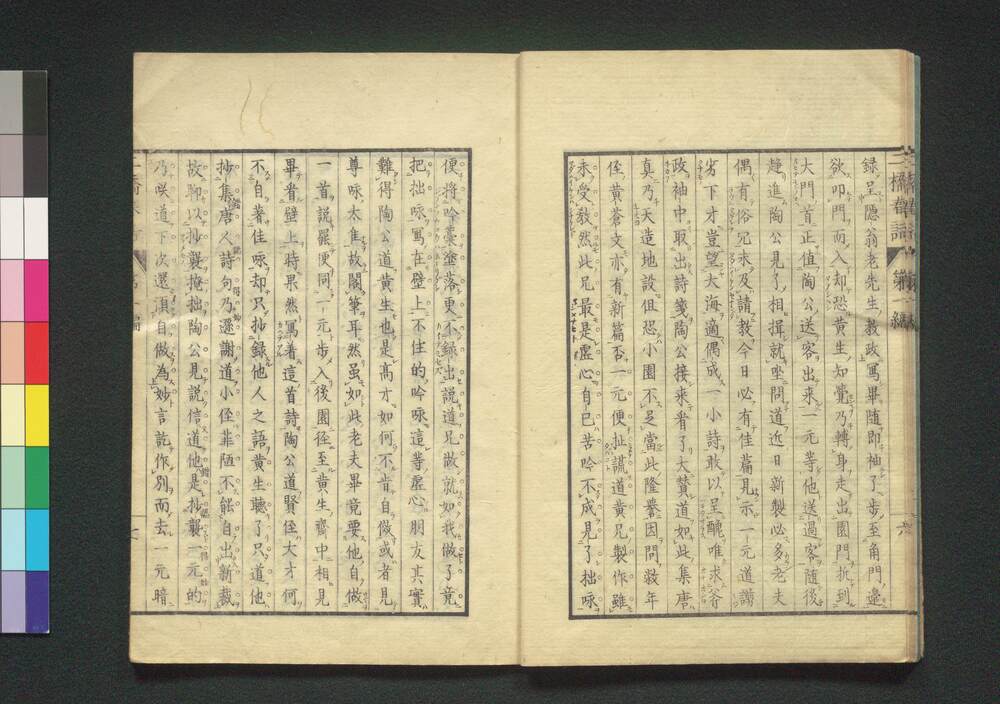 録呈隱翁老先生教政寫畢隨即袖了步至角門邊
欲叩門而入却恐黄生知覺乃轉身走出園門折到
大門首正值陶公送客出来一元等他送過客隨後
趨進陶公見了相揖就坐問道近日新製必多老夫
偶有俗冗未及請教今日必有佳篇見示一元道謭
劣下才豈望大海適偶成一小詩敢以呈醜唯求斧
政袖中取出詩箋陶公接来看了大賛道如此集唐
真乃天造地設但恐小園不足當此隆譽因問敎年
侄黄蒼文亦有新篇否一元便扯謊道黄兄製作雖
未受敎然此兄最是虚心自己苦吟不成見了拙咏
便將吟囊塗落更不録出說道兄做就如我做了竟
把拙咏寫在壁上不住的吟咏這等虚心朋友其實
難得陶公道黄生也是高才如何不肯自做或者見
尊咏太佳故閣筆耳然雖如此老夫畢竟要他自做
一首說罷便同一元步入後園徑至黄生齋中相見
畢看壁上時果然寫着這首詩陶公道賢侄大才何
不自著佳咏却只抄録他人之語黄生聽了只道他
抄集唐人詩句乃遜謝道小侄菲陋不能自出新裁
故聊以抄襲掩拙陶公見說信道他是抄襲一元的
乃咲道下次還須自做為妙言訖作別而去一元暗